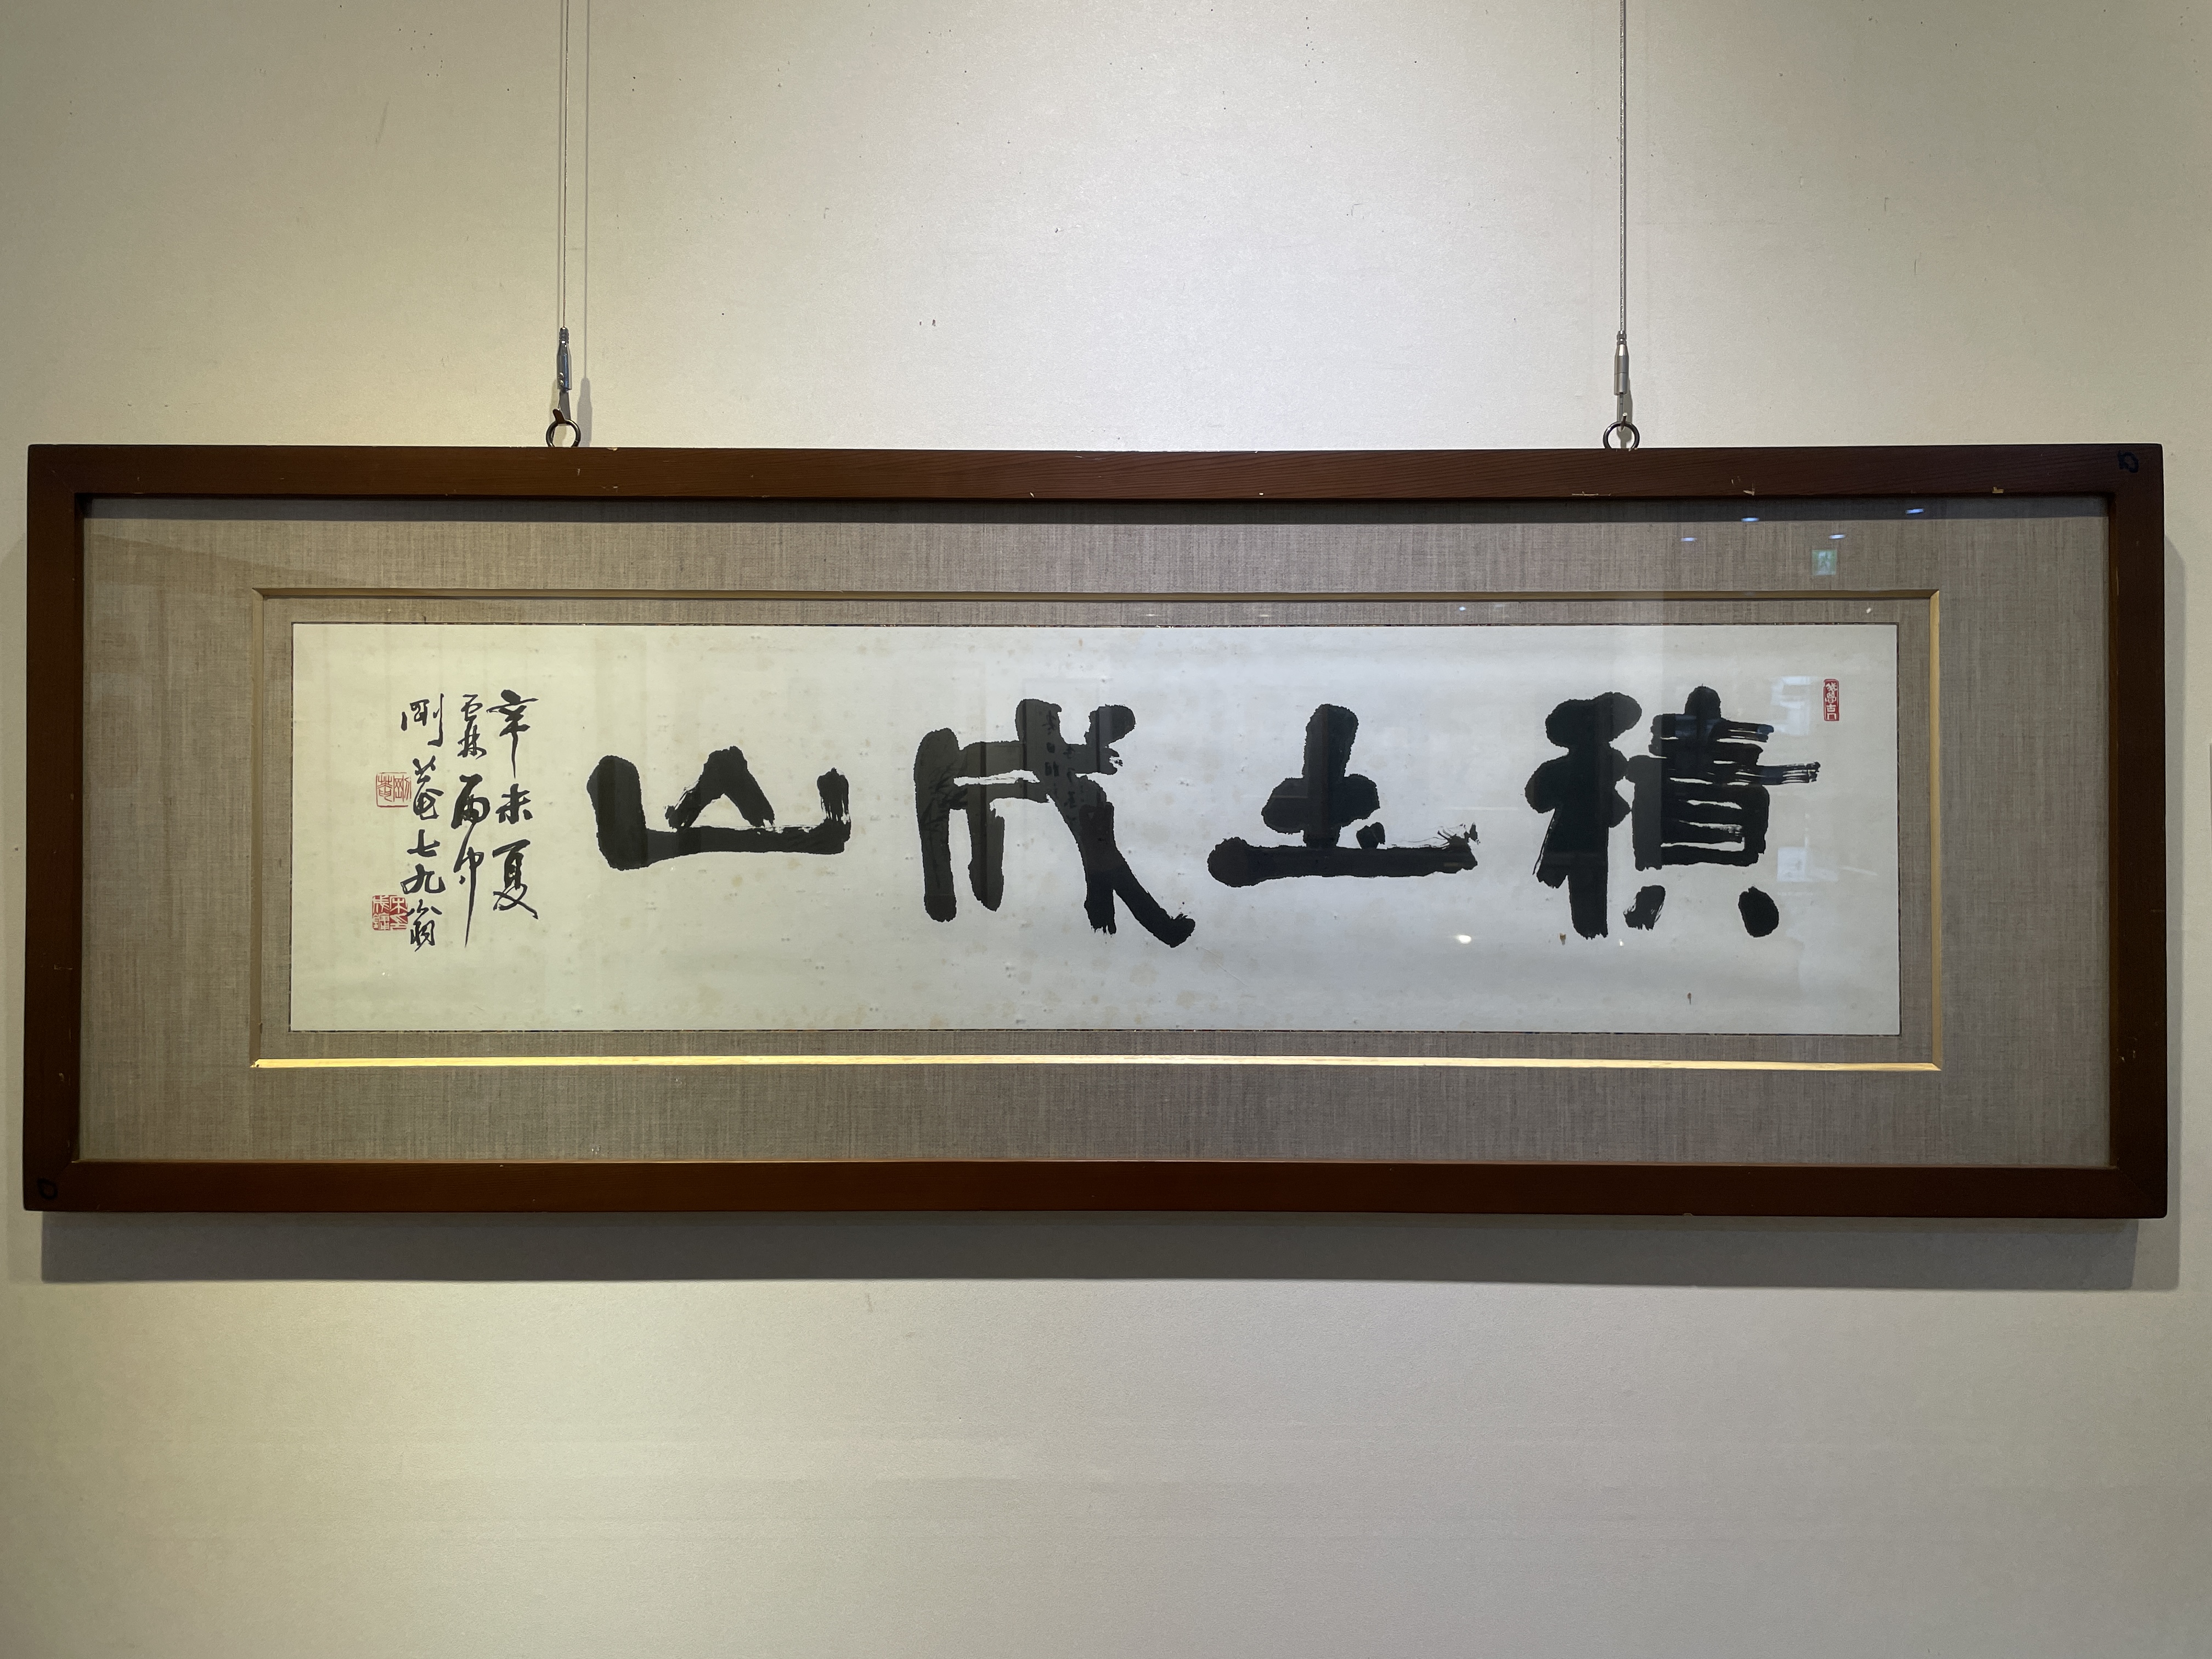 積土成山
辛未夏
霖雨中
剛菴七九翁